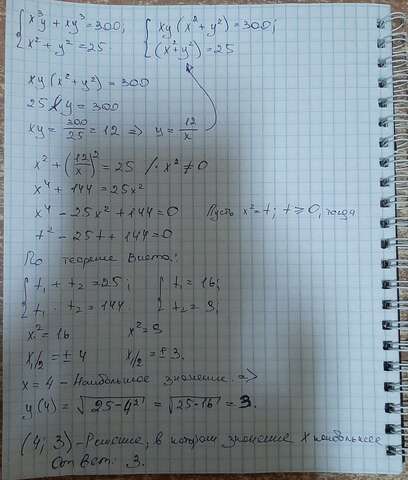 { x³y + xy³ = 300; { xy(x² + y²) = 300;
{ x² + y² = 25 { (x² + y²) = 25
xy(x² + y²) = 300
25xy = 300
xy = 300/25 = 12 => y = 12/x
x² + (12/x)² = 25 / · x² ≠ 0
x⁴ + 144 = 25x²
x⁴ - 25x² + 144 = 0 Пусть x² = t; t ≥ 0, тогда
t² - 25t + 144 = 0
По теореме Виета:
{ t₁ + t₂ = 25; { t₁ = 16;
{ t₁ · t₂ = 144 { t₂ = 9;
x² = 16 x² = 9
x₁/₂ = ± 4 x₁/₂ = ± 3.
x = 4 - Наибольшое значение =>
y(4) = √25-4² = √25-16 = 3.
(4; 3) - Решение, в котором значение x наибольшее
Ответ: 3.